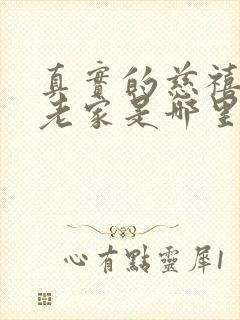 真實的慈禧
老家是哪里
心有點靈犀1